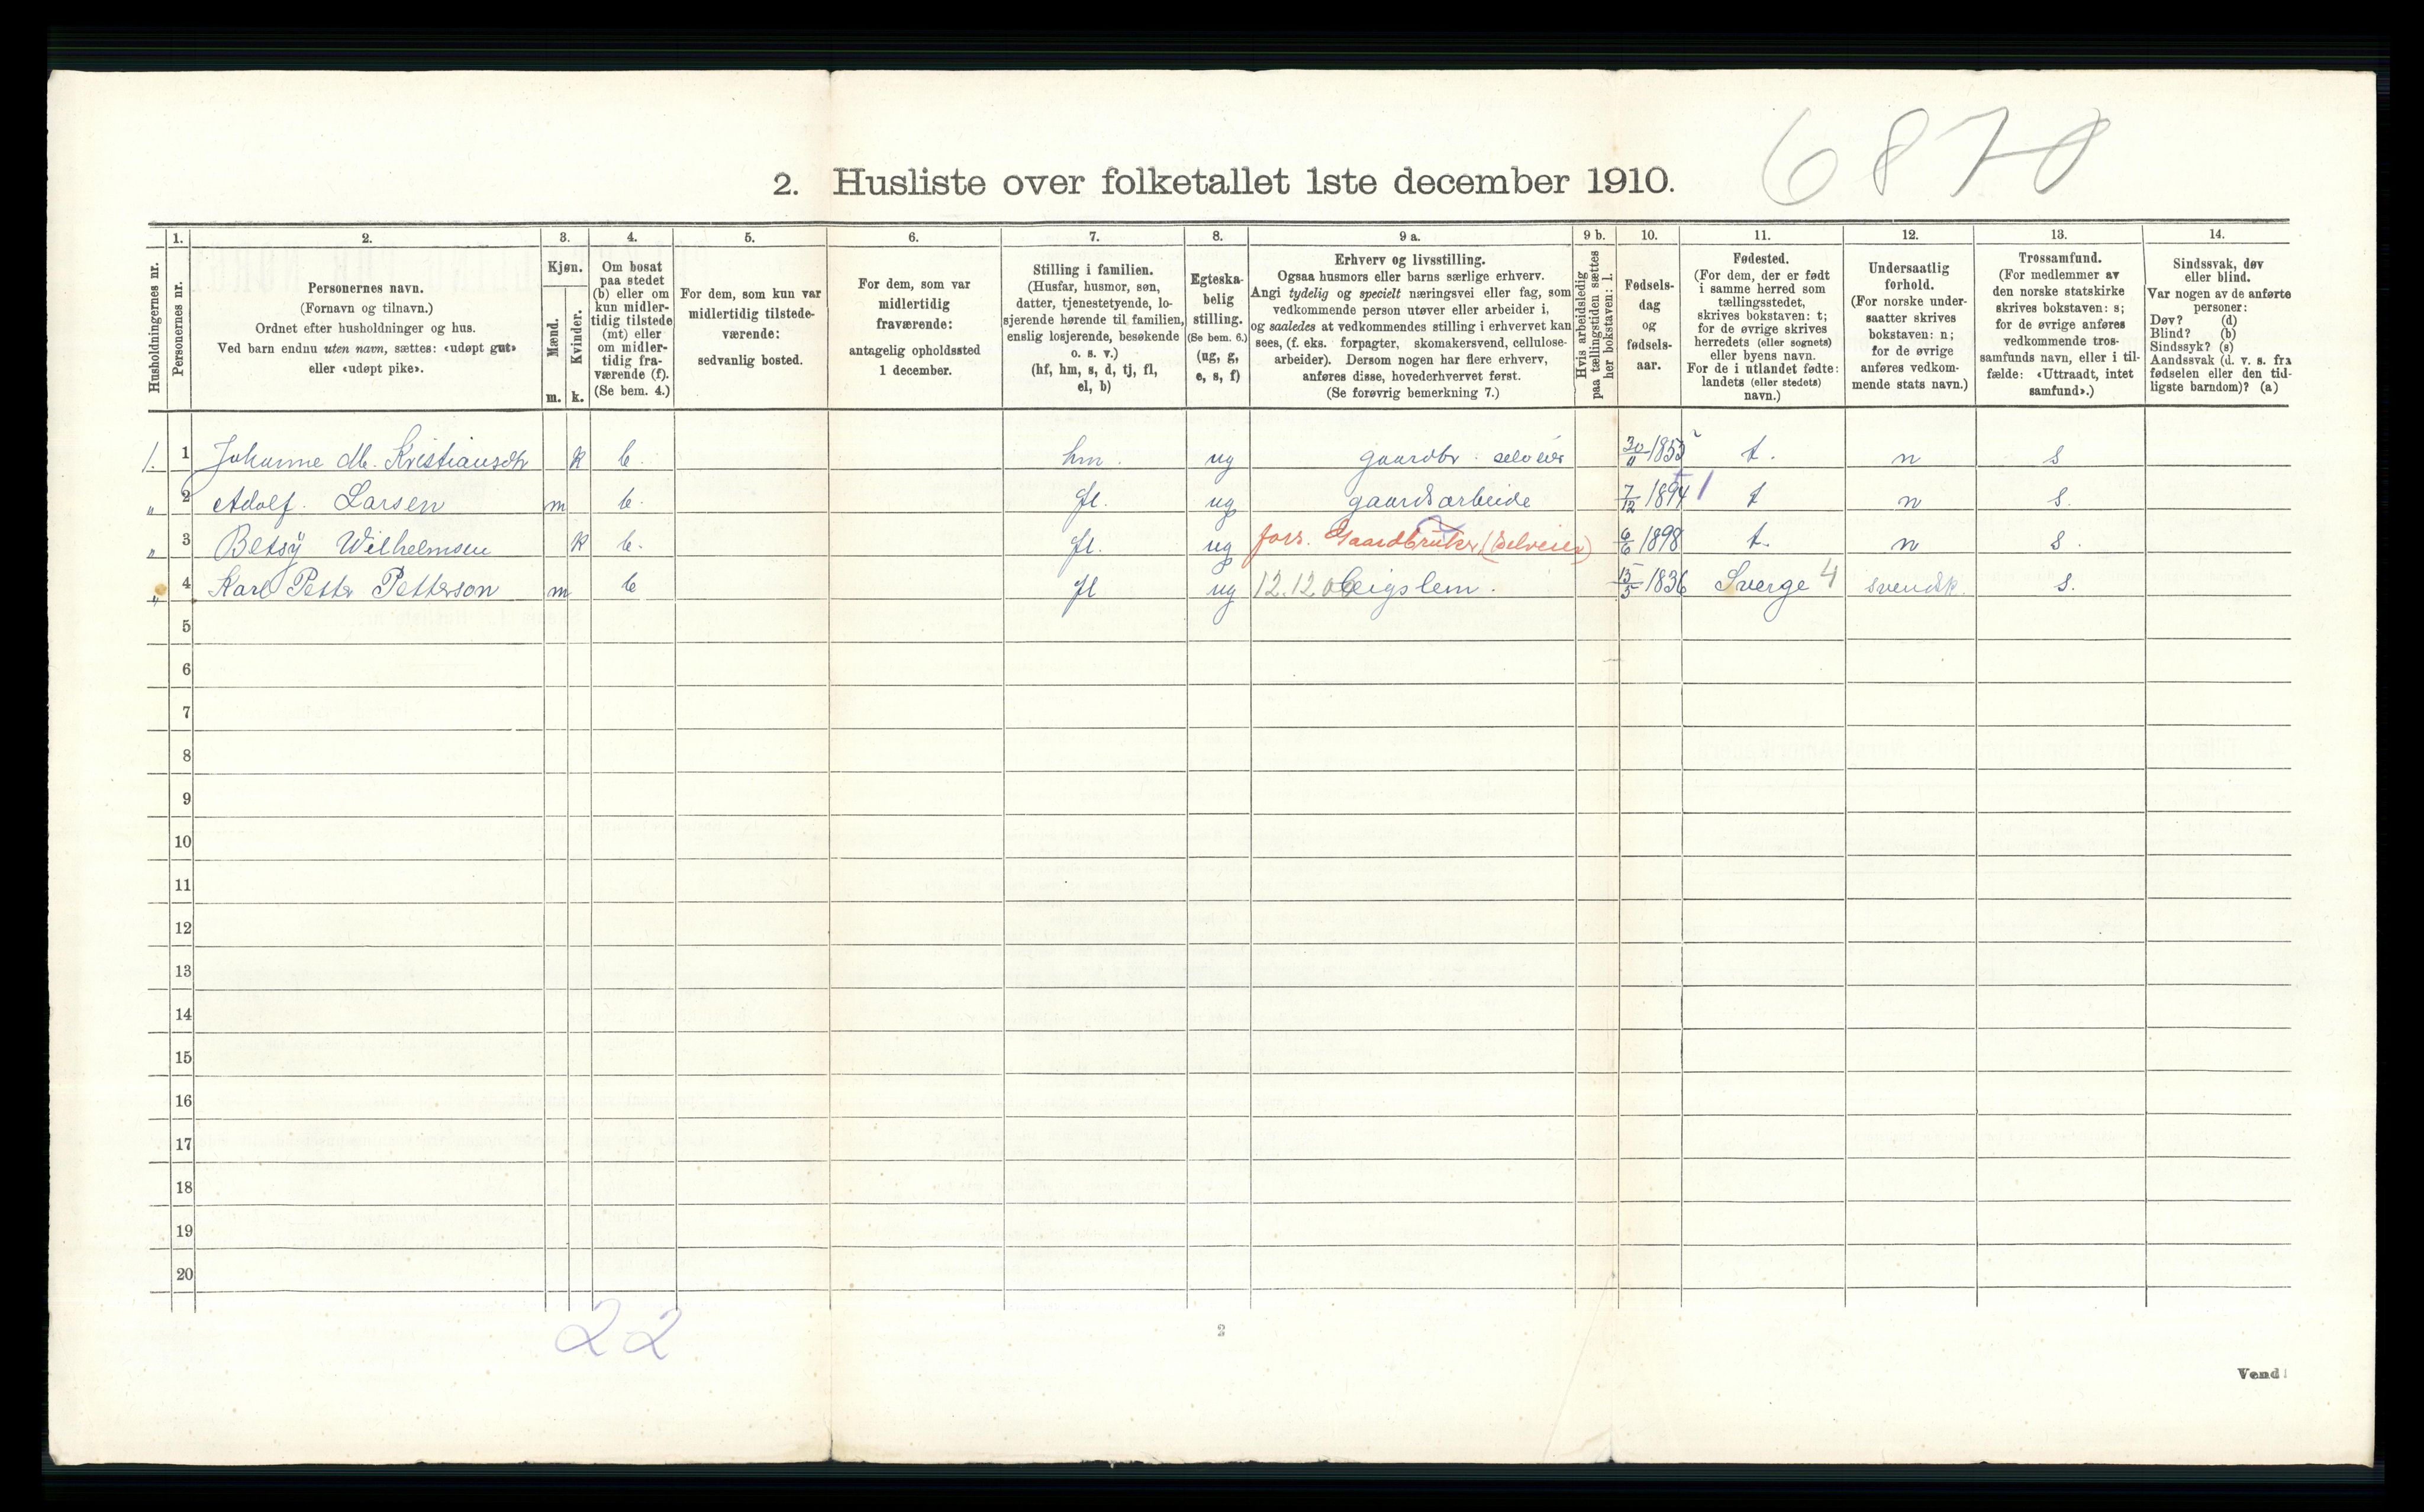 6870
2. Husliste over folketallet 1ste december 1910.
Husholdningernes nr.
1.
Personernes nr.
2.
Personernes navn.
(Fornavn og tilnavn.)
Ordnet efter husholdninger og hus.
Ved barn endnu uten navn, sættes: «udøpt gut»
eller «udøpt pike».
3.
Kjøn.
Mænd.
Kvinder.
m. k.
4.
Om bosat
paa stedet
(b) eller om
kun midler-
tidig tilstede
(mt) eller
om midler-
tidig fra-
værende (f).
(Se bem. 4.)
5.
For dem, som kun var
midlertidig tilstede-
værende:
sedvanlig bosted.
6.
For dem, som var
midlertidig
fraværende:
antagelig opholdssted
1 december.
7.
Stilling i familien.
(Husfar, husmor, søn,
datter, tjenestetyende, lo-
sjerende hørende til familien,
enslig losjerende, besøkende
o. s. v.)
(hf, hm, s, d, tj, fl,
el, b)
8.
Egteska-
belig
stilling.
(Se bem. 6.)
(ug, g,
e, s, f)
9 a.
Erhverv og livsstilling.
Ogsaa husmors eller barns særlige erhverv.
Angi tydelig og specielt næringsvei eller fag, som
vedkommende person utøver eller arbeider i,
og saaledes at vedkommendes stilling i erhvervet kan
sees, (f. eks. forpagter, skomakersvend, cellulose-
arbeider). Dersom nogen har flere erhverv,
anføres disse, hovederhvervet først.
(Se forøvrig bemerkning 7.)
9 b.
Hvis arbeidsledig
paa tællingstiden sættes
her bokstaven: l.
10.
Fødsels-
dag
og
fødsels-
aar.
11.
Fødested.
(For dem, der er født
i samme herred som
tællingsstedet,
skrives bokstaven: t;
for de øvrige skrives
herredets (eller sognets)
eller byens navn.
For de i utlandet fødte:
landets (eller stedets)
navn.)
12.
Undersaatlig
forhold.
(For norske under-
saatter skrives
bokstaven: n;
for de øvrige
anføres vedkom-
mende stats navn.)
13.
Trossamfund.
(For medlemmer av
den norske statskirke
skrives bokstaven: s;
for de øvrige anføres
vedkommende tros-
samfunds navn, eller i til-
fælde: «Uttraadt, intet
samfund».)
14.
Sindssvak, døv
eller blind.
Var nogen av de anførte
personer:
Døv? (d)
Blind? (b)
Sindssyk? (s)
Aandssvak (d. v. s. fra
fødselen eller den tid-
ligste barndom)? (a)
1. 1 Johanne M. Kristiansdtr k b. hm. ug gaardbr. selveier 30/11 1853 t. n s
" 2 Adolf. Larsen m b. fl. ug gaardsarbeide 7/12 1894 1 t n s.
" 3 Betsÿ Wilhelmsen k b. fl. ug fors. Gaardbruker (Selveier) 6/6 1898 t. n s.
" 4 Karl Petter Petterson m b fl ug 12.12.06 leigslem. 15/5 1836 Sverge 4 svensk. s.
5
6
7
8
9
10
11
12
13
14
15
16
17
18
19
20
22
2
Vend!